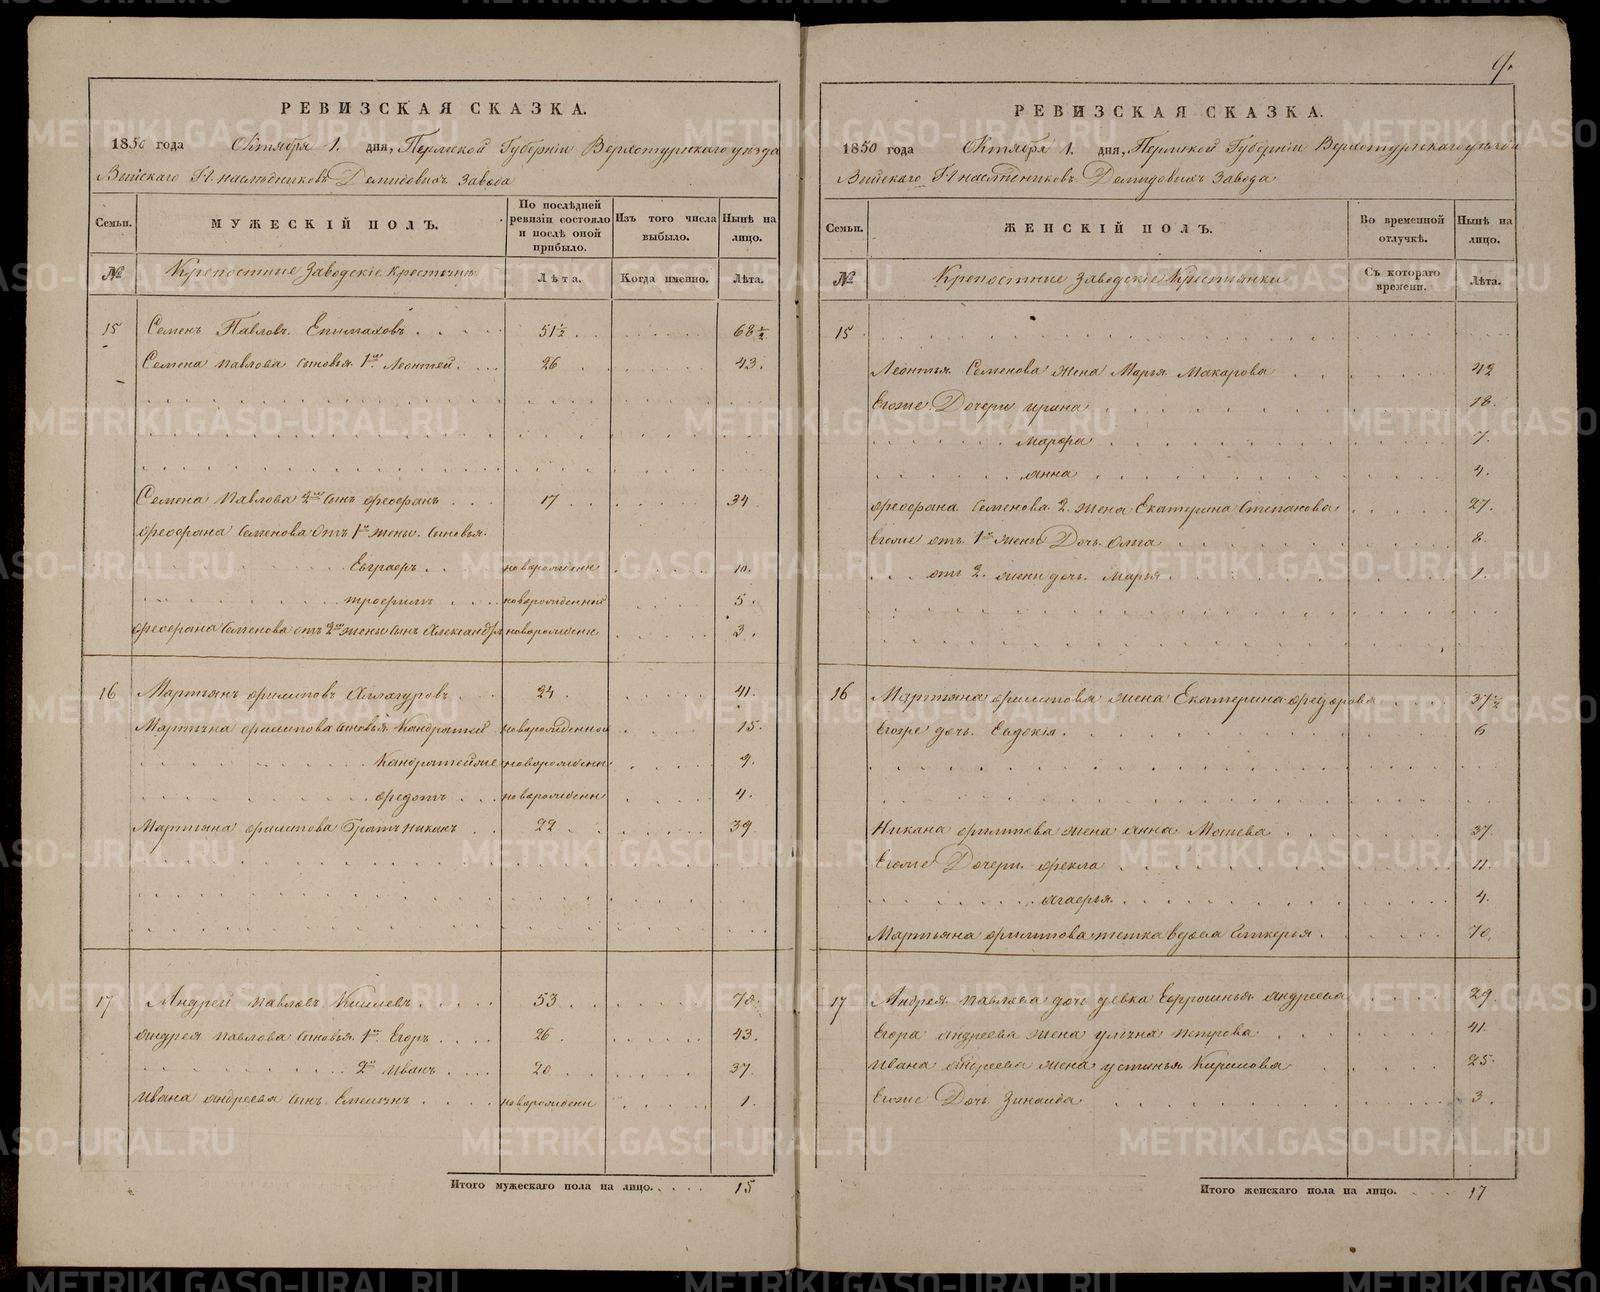 9.
РЕВИЗСКАЯ СКАЗКА.
1850 года Октября 1. дня, Пермской Губернiи Верхотурскаго уѣзда
Выйскаго Гг. наслѣдниковъ Демидовыхъ завода
Семьи.
МУЖЕСКIЙ ПОЛЪ.
По послѣдней ревизiи состояло и послѣ оной прибыло.
Изъ того числа выбыло.
Нынѣ на лицо.
№
Крепостные Заводскiе Крестьяне
Лѣта.
Когда именно.
Лѣта.
15 Семенъ Павловъ Епимаховъ 51½ 68½
Семена Павлова сыновья 1й Леонтей 26 43.
Семена Павлова 2й сынъ Феофанъ 17 34
Феофана Семенова отъ 1й жены сыновья
Евграфъ новорожденн 10.
Трофимъ новорожденный 5.
Феофана Семенова отъ 2й жены сынъ Александръ новорожденн 3.
16 Мартынъ Филиповъ 24. 41.
Мартына Филипова сыновья Кандратей новорожденной 15.
Кандратейже новорожденн 9.
Федотъ новорожденн 4.
Мартьяна Филипова братъ Никанъ 22 39
17 Андрей Павловъ Киселевъ 53 70.
Андрея Павлова сыновья 1й Егоръ 26 43.
2й Иванъ 20 37.
Ивана Андреева сынъ новорожденн 1.
Итого мужескаго пола на лицо. 15
РЕВИЗСКАЯ СКАЗКА.
1850 года Октября 1. дня, Пермской Губернiи Верхотурскаго уѣзда
Выйскаго Гг наслѣдниковъ Демидовыхъ Завода
Семьи.
ЖЕНСКIЙ ПОЛЪ.
Во временной отлучкѣ.
Нынѣ на лицо.
№
Крепостные Заводскiе Крестьянки
Съ котораго времени.
Лѣта.
15
Леонтья Семенова жена Марья Макарова 42
Егоже Дочери Ирина 18.
Марфа 7.
Анна 4.
Феофана Семенова 2. жена Екатерина Степанова 27.
Егоже отъ 1й жены Дочь Олга 8.
отъ 2. жены дочь Марья 1.
16 Мартьяна Филипова жена Екатерина Федорова 37½
Егоже дочь Евдокiя. 6
Никана Филипова жена Анна Мосѣева 37.
Егоже Дочери Фекла 11.
Агафья 4.
Мартьяна Филипова тетка вдова 70.
17 Андрея Павлова дочь девка Ефросинья Андреева 29.
Егора Андреева жена Улiяна Петрова 41.
Ивана Андреева жена Устинья Кирилова 25.
Егоже Дочь Зинаида 3.
Итого женскаго пола на лицо. 17
METRIKI.GASO-URAL.RU